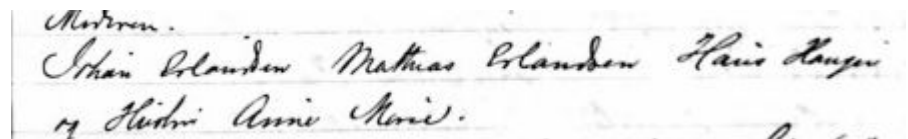 Moderen.
Johan Erlandsen Mathias Erlandsen Hans Haugen
og Hustru Anne Marie.